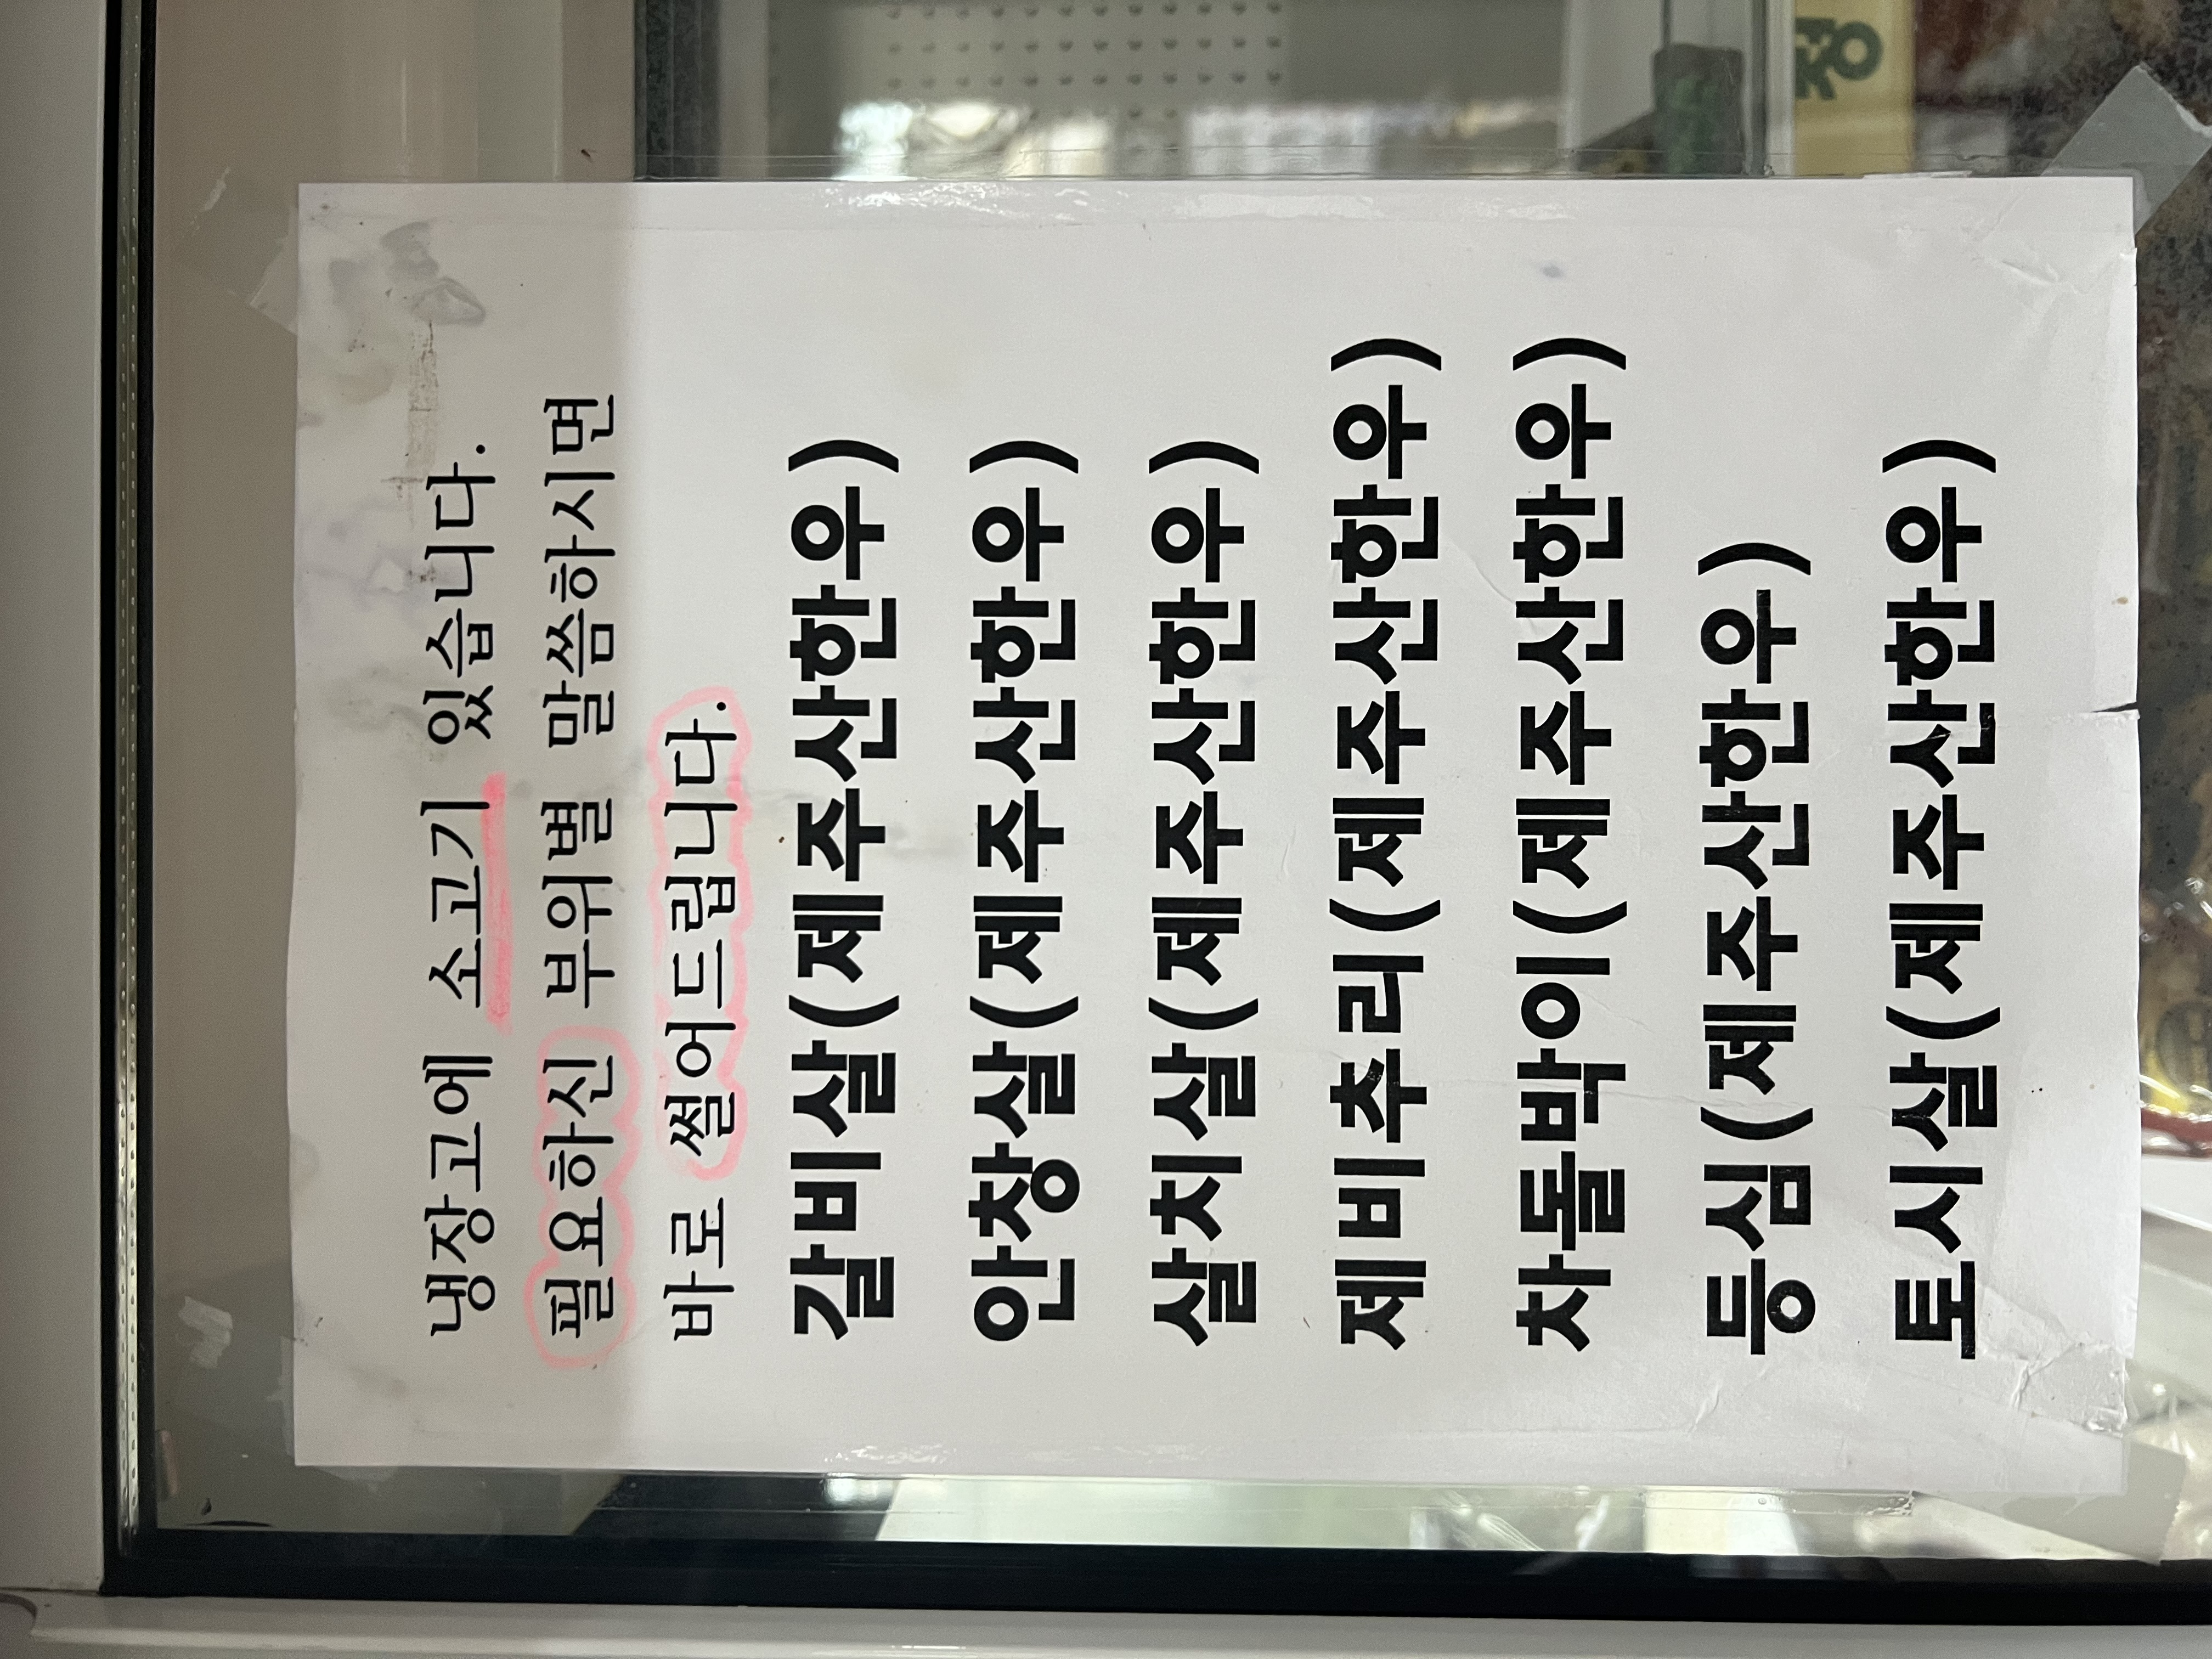 냉장고에 소고기 있습니다.
필요하신 부위별 말씀하시면
바로 썰어드립니다.
갈비살(제주산한우)
안창살(제주산한우)
살치살(제주산한우)
제비추리(제주산한우)
차돌박이(제주산한우)
등심(제주산한우)
토시살(제주산한우)